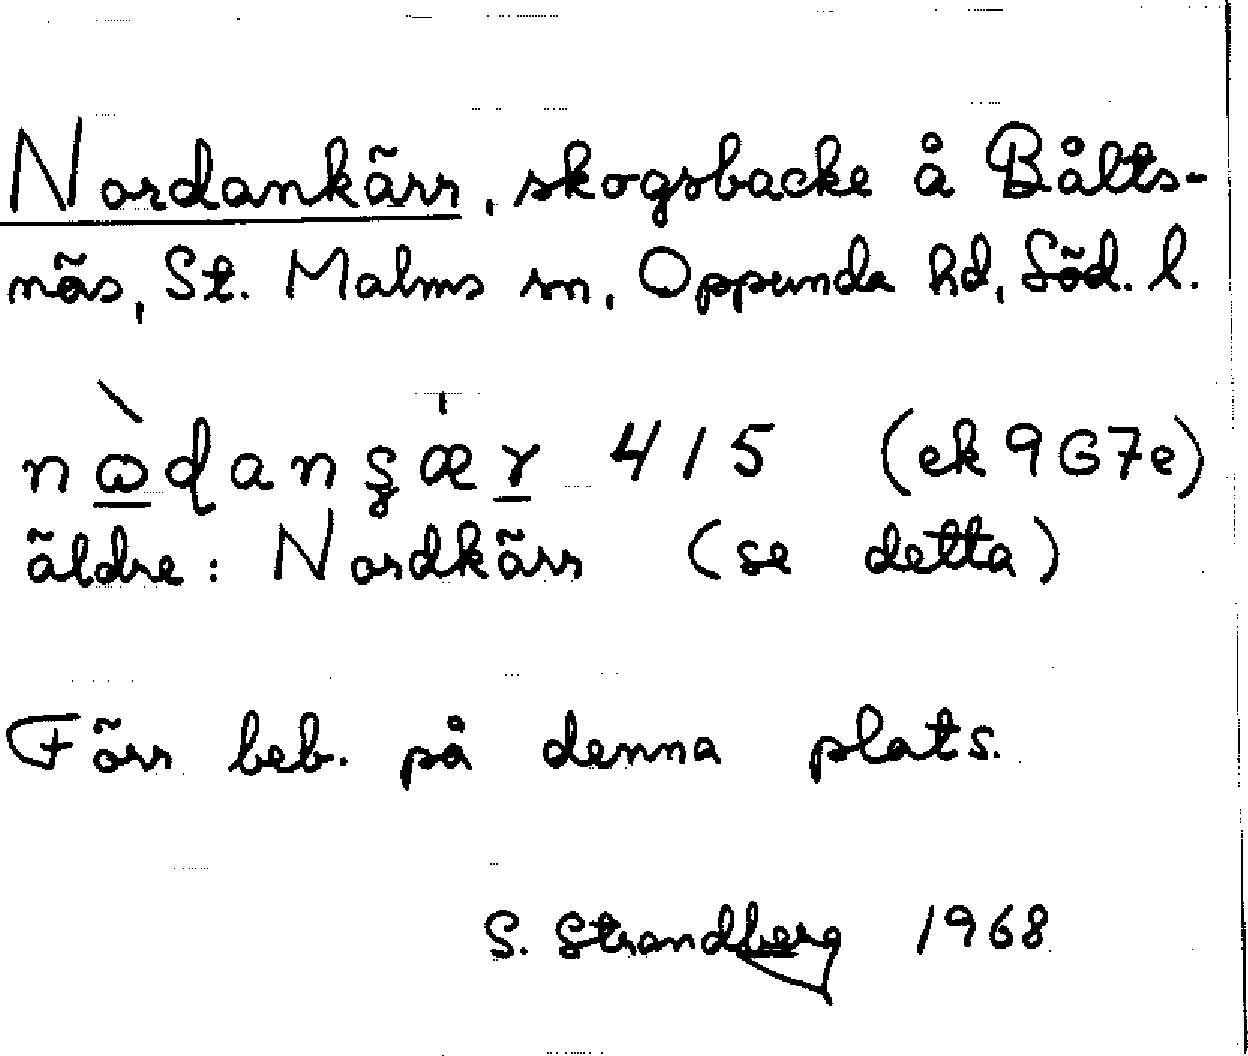 Nordankärr, skogsbacke å Bålts-
näs, St. Malms sn, Oppunda hd, Söd. l.
415 (ek 9G7e)
äldre: Nordkärr (se detta)
Förr beb. på denna plats.
S. Strandberg 1968